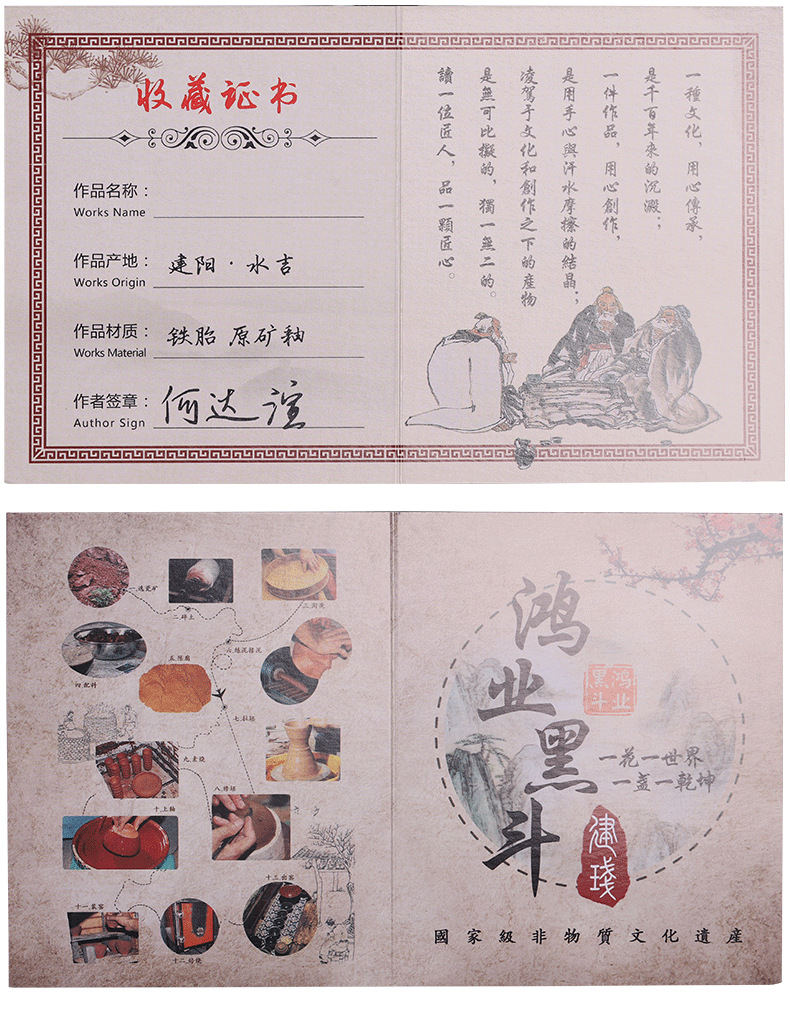 收藏证书
作品名称：
Works Name
作品产地： 建阳·水吉
Works Origin
作品材质： 铁胎 原矿釉
Works Material
作者签章： 何达谊
Author Sign
一種文化，用心傳承，
是千百年來的沉澱；
一件作品，用心創作，
是用手心與汗水摩擦的結晶；
凌駕于文化和創作之下的産物
是無可比擬的，獨一無二的。
讀一位匠人，品一顆匠心。
一.选瓷矿
二.碎土
三.淘洗
四.配料
五.陈腐
六.练泥揉泥
七.拉坯
八.修坯
九.素烧
十.上釉
十一.装窑
十二.焙烧
十三.出窑
鸿业黑斗
鸿业黑斗
一花一世界
一盏一乾坤
建琖
國家級非物質文化遺産